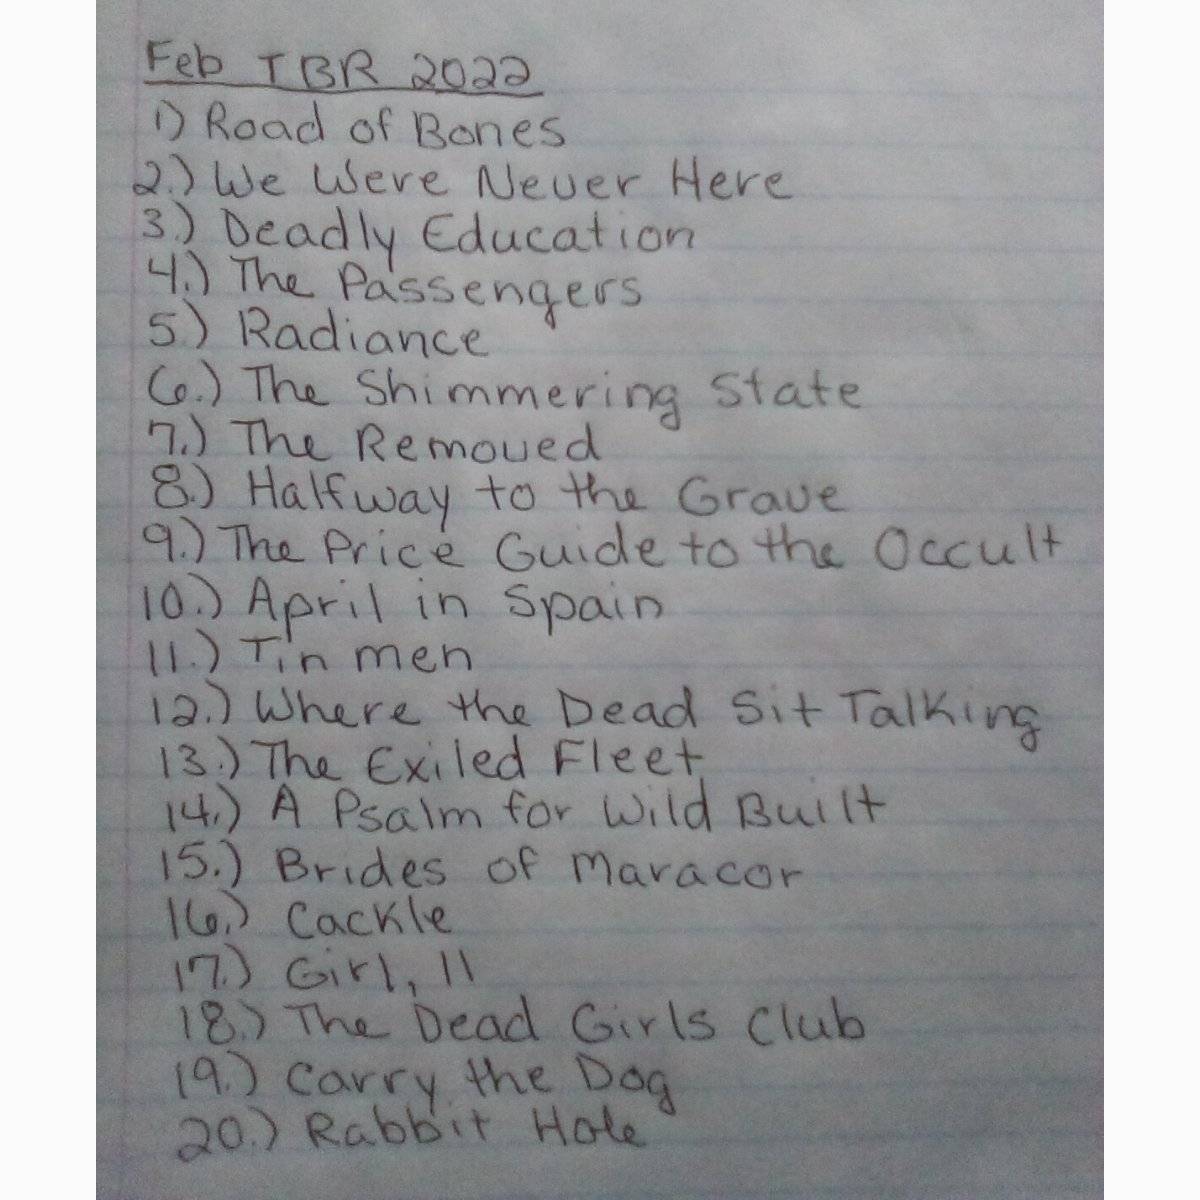 Feb TBR 2022
1) Road of Bones
2.) We Were Never Here
3.) Deadly Education
4.) The Passengers
5.) Radiance
6.) The Shimmering State
7.) The Removed
8.) Halfway to the Grave
9.) The Price Guide to the Occult
10.) April in Spain
11.) Tin men
12.) Where the Dead Sit Talking
13.) The Exiled Fleet
14.) A Psalm for Wild Built
15.) Brides of Maracor
16.) Cackle
17.) Girl, 11
18.) The Dead Girls Club
19.) Carry the Dog
20.) Rabbit Hole